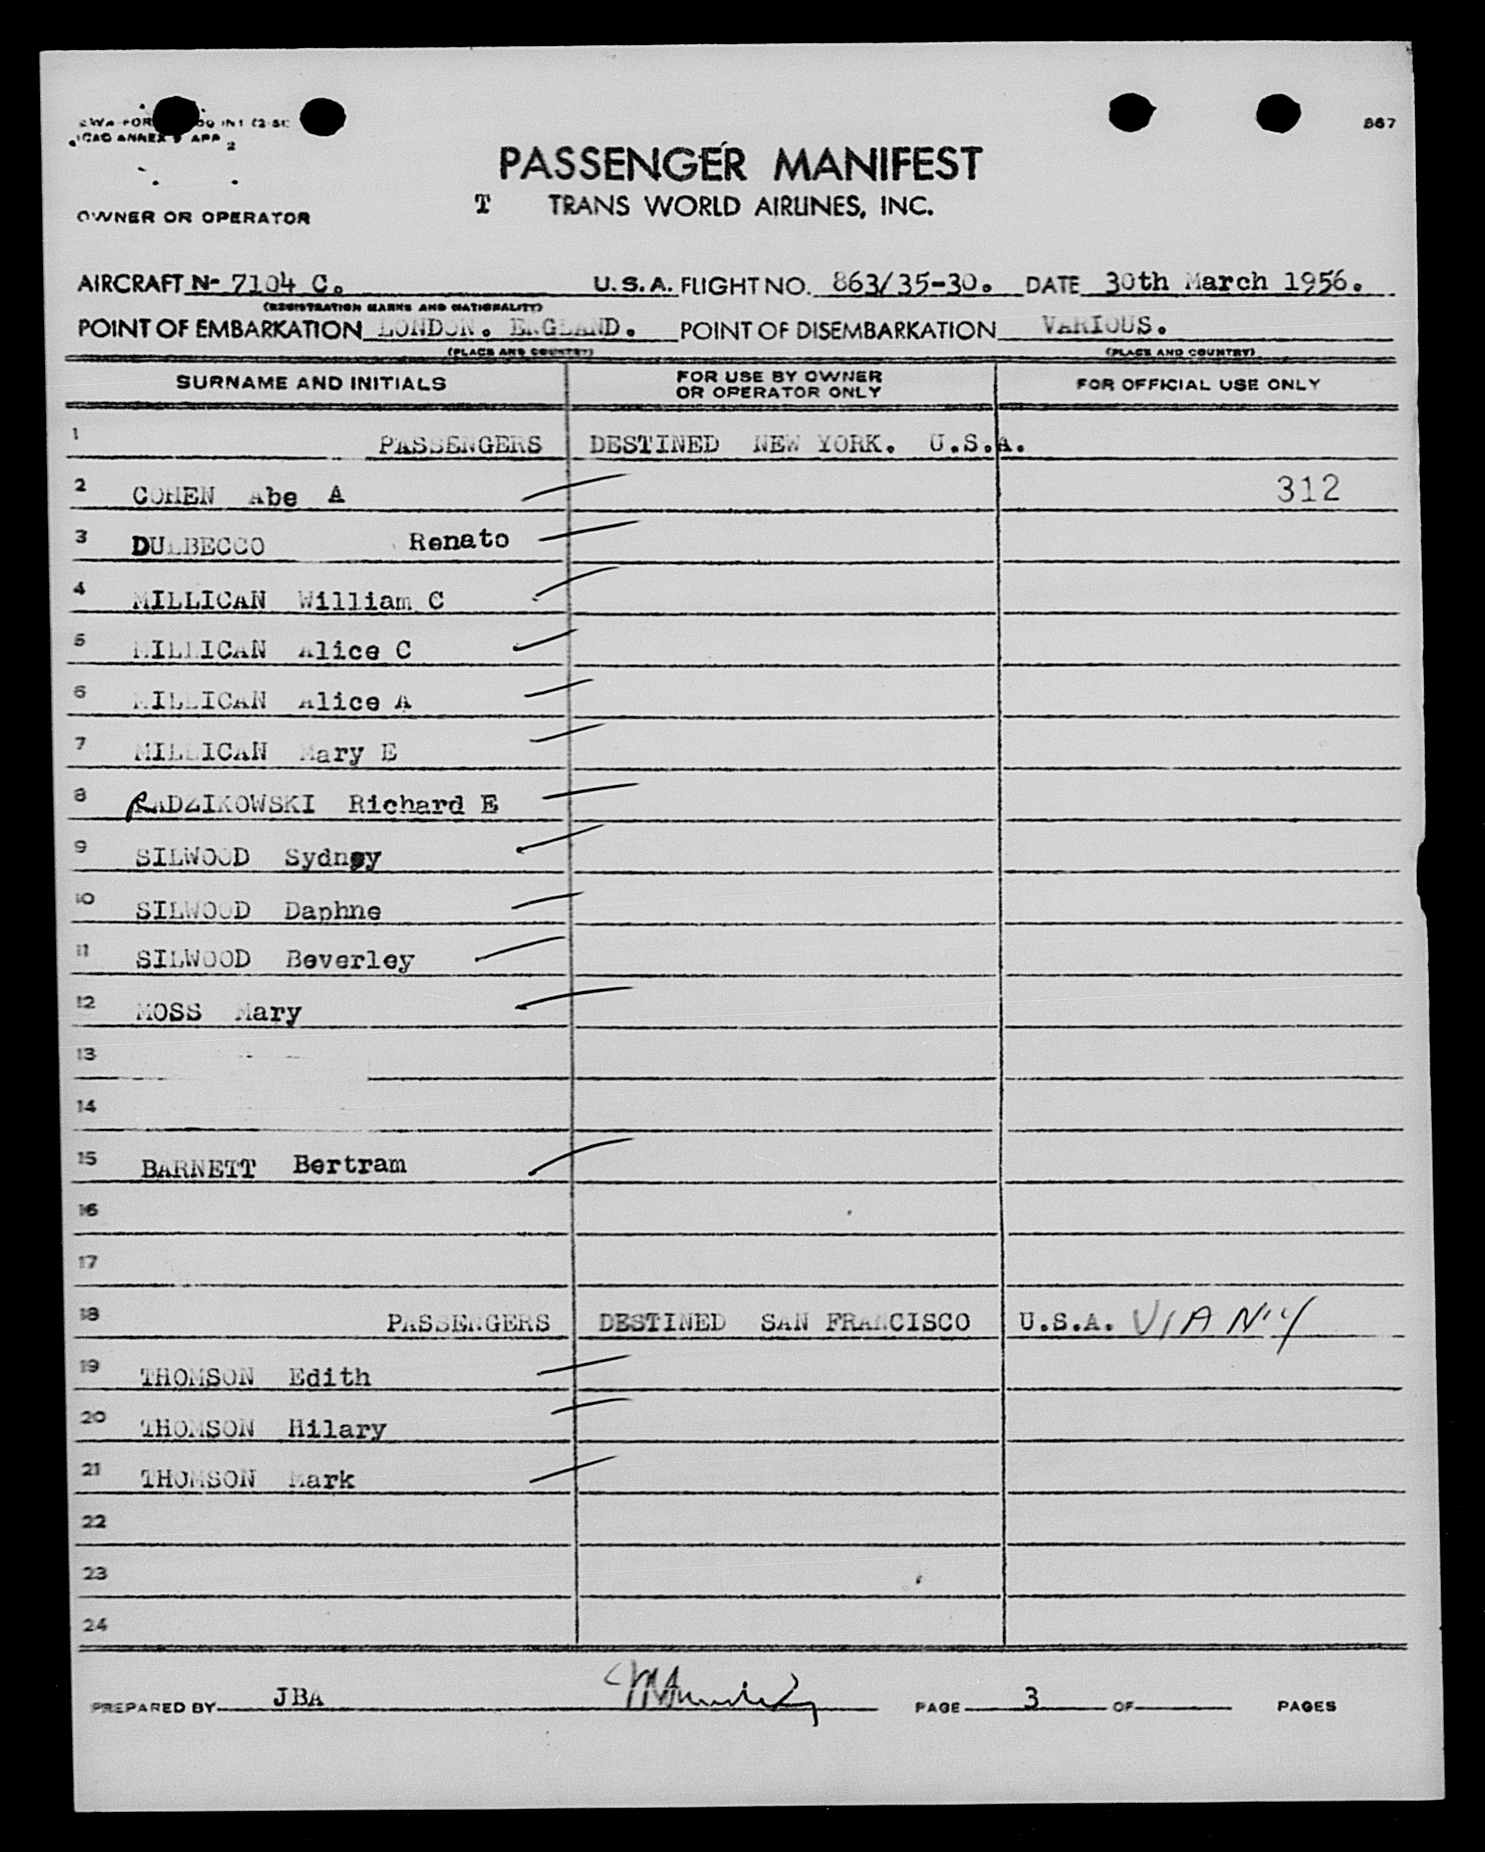 ICAO ANNEX 9 APP 2
867
PASSENGER MANIFEST
T TRANS WORLD AIRLINES, INC.
OWNER OR OPERATOR
AIRCRAFT N- 7104 C. U.S.A. FLIGHT NO. 863/35-30. DATE 30th March 1956.
(REGISTRATION MARKS AND NATIONALITY)
POINT OF EMBARKATION LONDON. ENGLAND. POINT OF DISEMBARKATION VARIOUS.
(PLACE AND COUNTRY) (PLACE AND COUNTRY)
SURNAME AND INITIALS FOR USE BY OWNER OR OPERATOR ONLY FOR OFFICIAL USE ONLY
1 PASSENGERS DESTINED NEW YORK. U.S.A.
2 COHEN Abe A 312
3 DULBECCO Renato
4 MILLICAN William C
5 MILLICAN Alice C
6 MILLICAN Alice A
7 MILLICAN Mary E
8 RADZIKOWSKI Richard E
9 SILWOOD Sydney
10 SILWOOD Daphne
11 SILWOOD Beverley
12 MOSS Mary
13
14
15 BARNETT Bertram
16
17
18 PASSENGERS DESTINED SAN FRANCISCO U.S.A. VIA N.Y
19 THOMSON Edith
20 THOMSON Hilary
21 THOMSON Mark
22
23
24
PREPARED BY JBA PAGE 3 OF PAGES